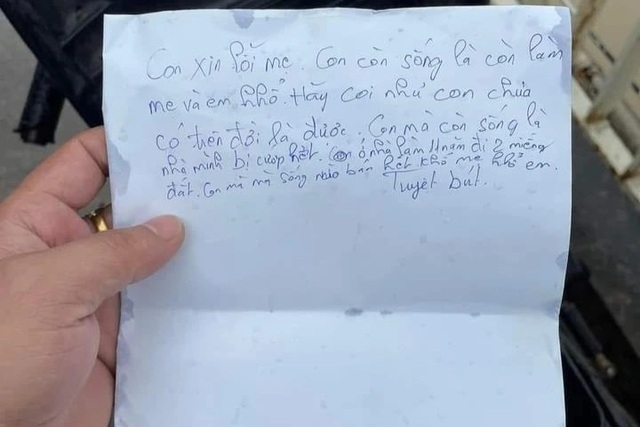 Con xin lỗi mẹ. Con còn sống là còn làm
mẹ và em khổ. Hãy coi như con chưa
có trên đời là được. Con mà còn sống là
nhà mình bị cướp hết. ở nhà làm 11 năm đi 2 miếng
đất. Con mà mà sống nào bán hết khổ mẹ khổ em.
Tuyệt bút.